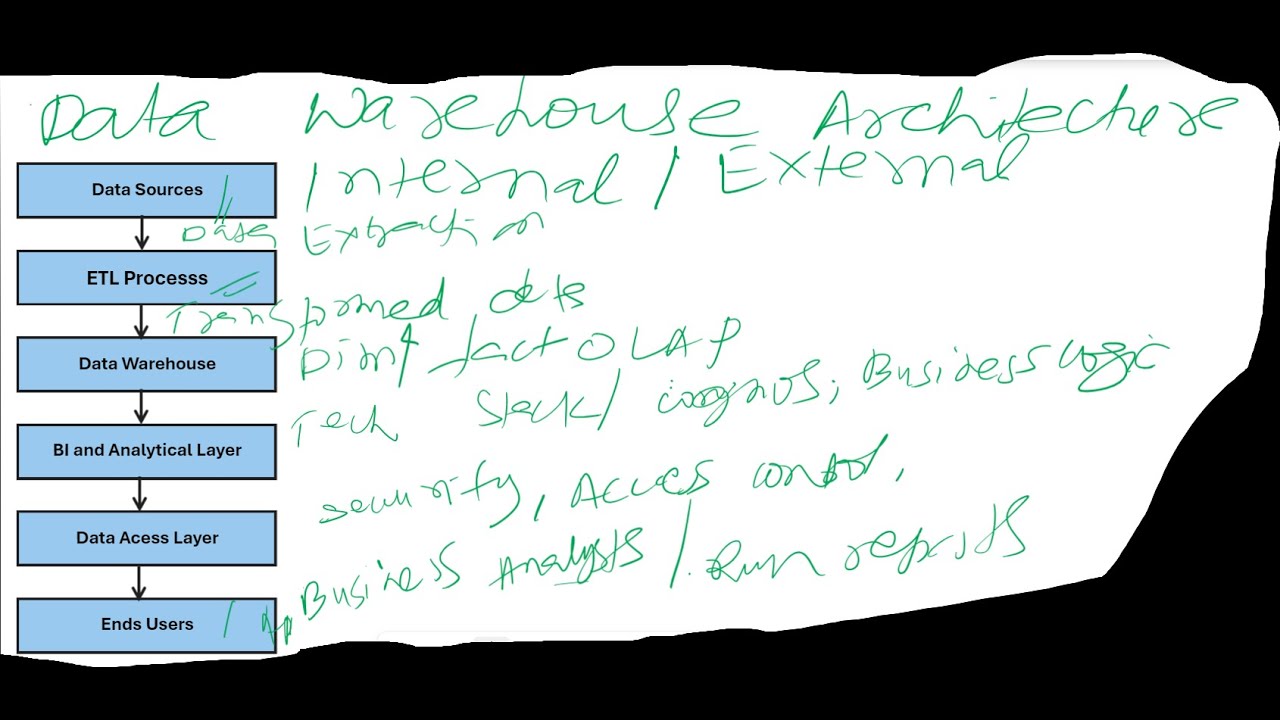 Data Warehouse Architecture
Data Sources
Internal / External
Data Extraction
ETL Processs
Transformed data
Data Warehouse
Dim / fact OLAP
Tech Stack / cognos, Business Logic
BI and Analytical Layer
security, Access control,
Data Acess Layer
Business Analysts / Run reports
Ends Users